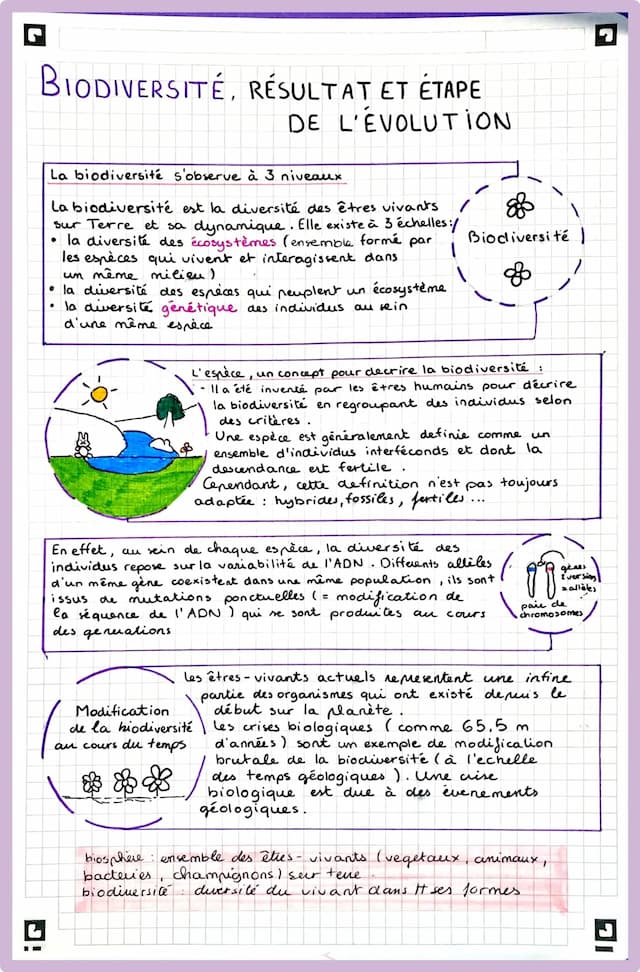 BIODIVERSITÉ, RÉSULTAT ET ÉTAPE
DE L'ÉVOLUTION
La biodiversité s'observe à 3 niveaux
La biodiversité est la diversité des êtres vivants
sur Terre et sa dynamique. Elle existe à 3 échelles:
• la diversité des écosystèmes (ensemble formé par
les espèces qui vivent et interagissent dans
un même milieu)
• la diversité des espèces qui peuplent un écosystème
• la diversité génétique des individus au sein
d'une même espèce
Biodiversité
L'espèce, un concept pour decrire la biodiversité :
- Il a été inventé par les êtres humains pour décrire
la biodiversité en regroupant des individus selon
des critères.
Une espèce est généralement definie comme un
ensemble d'individus interféconds et dont la
descendance est fertile.
Cependant, cette definition n'est pas toujours
adaptée : hybrides, fossiles, fertiles ...
En effet, au sein de chaque espèce, la diversité des
individus repose sur la variabilité de l'ADN. Différents allèles
d'un même gène coexistent dans une même population, ils sont
issus de mutations ponctuelles (= modification de
la séquence de l'ADN) qui se sont produites au cours
des generations
gènes
2 version
2 allèles
paire de
chromosomes
Les êtres-vivants actuels representent une infime
partie des organismes qui ont existé depuis le
début sur la planète.
Les crises biologiques (comme 65,5 m
d'années) sont un exemple de modification
brutale de la biodiversité (à l'echelle
des temps géologiques). Une crise
biologique est due à des évenements
géologiques.
Modification
de la biodiversité
au cours du temps
biosphère : ensemble des êtres-vivants (vegetaux, animaux,
bacteries, champignons) sur terre
biodiversité : diversité du vivant dans tt ses formes